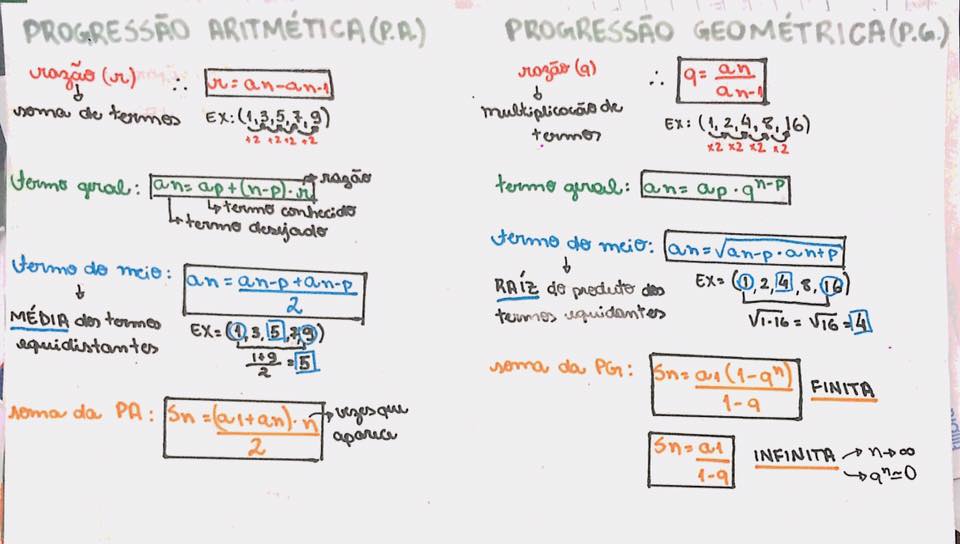 PROGRESSÃO ARITMÉTICA (P.A.)
razão (r) ∴ r = an - an-1
soma de termos
EX: (1, 3, 5, 7, 9)
+2 +2 +2 +2
termo geral: an = ap + (n-p) · r → razão
termo conhecido
termo desejado
termo do meio: an = an-p + an-p / 2
MÉDIA dos termos
equidistantes
EX = (1, 3, 5, 7, 9)
1+9 / 2 = 5
soma da PA: Sn = (a1 + an) · n / 2 → vezes que
aparece
PROGRESSÃO GEOMÉTRICA (P.G.)
razão (q) ∴ q = an / an-1
multiplicação de
termos
EX: (1, 2, 4, 8, 16)
x2 x2 x2 x2
termo geral: an = ap · q^n-p
termo do meio: an = √an-p · an+p
RAÍZ do produto dos
termos equidantes
EX = (1, 2, 4, 8, 16)
√1·16 = √16 = 4
soma da PG: Sn = a1 (1 - q^n) / 1 - q FINITA
Sn = a1 / 1 - q INFINITA → n → ∞
→ q^n ≃ 0